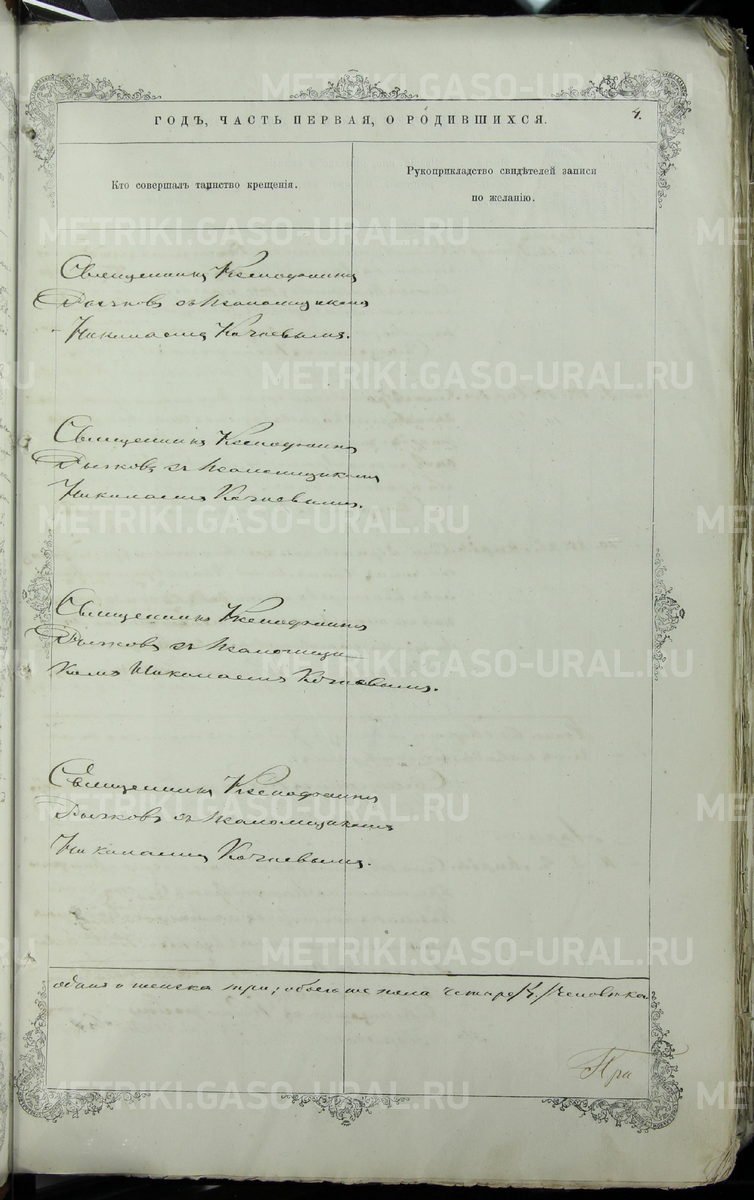 ГОДЪ, ЧАСТЬ ПЕРВАЯ, О РОДИВШИХСЯ.
4.
Кто совершалъ таинство крещенія.
Рукоприкладство свидѣтелей записи
по желанію.
Священникъ Ксенофонтъ
Рычковъ съ псаломщикомъ
Николаемъ Кочневымъ.
Священникъ Ксенофонтъ
Рычковъ съ псаломщикомъ
Николаемъ Кочневымъ.
Священникъ Ксенофонтъ
Рычковъ съ псаломщи-
комъ Николаемъ Кочневымъ.
Священникъ Ксенофонтъ
Рычковъ съ псаломщикомъ
Николаемъ Кочневымъ.
одинъ и женска три; обоего же пола четыре /4/ человѣка
При
METRIKI.GASO-URAL.RU